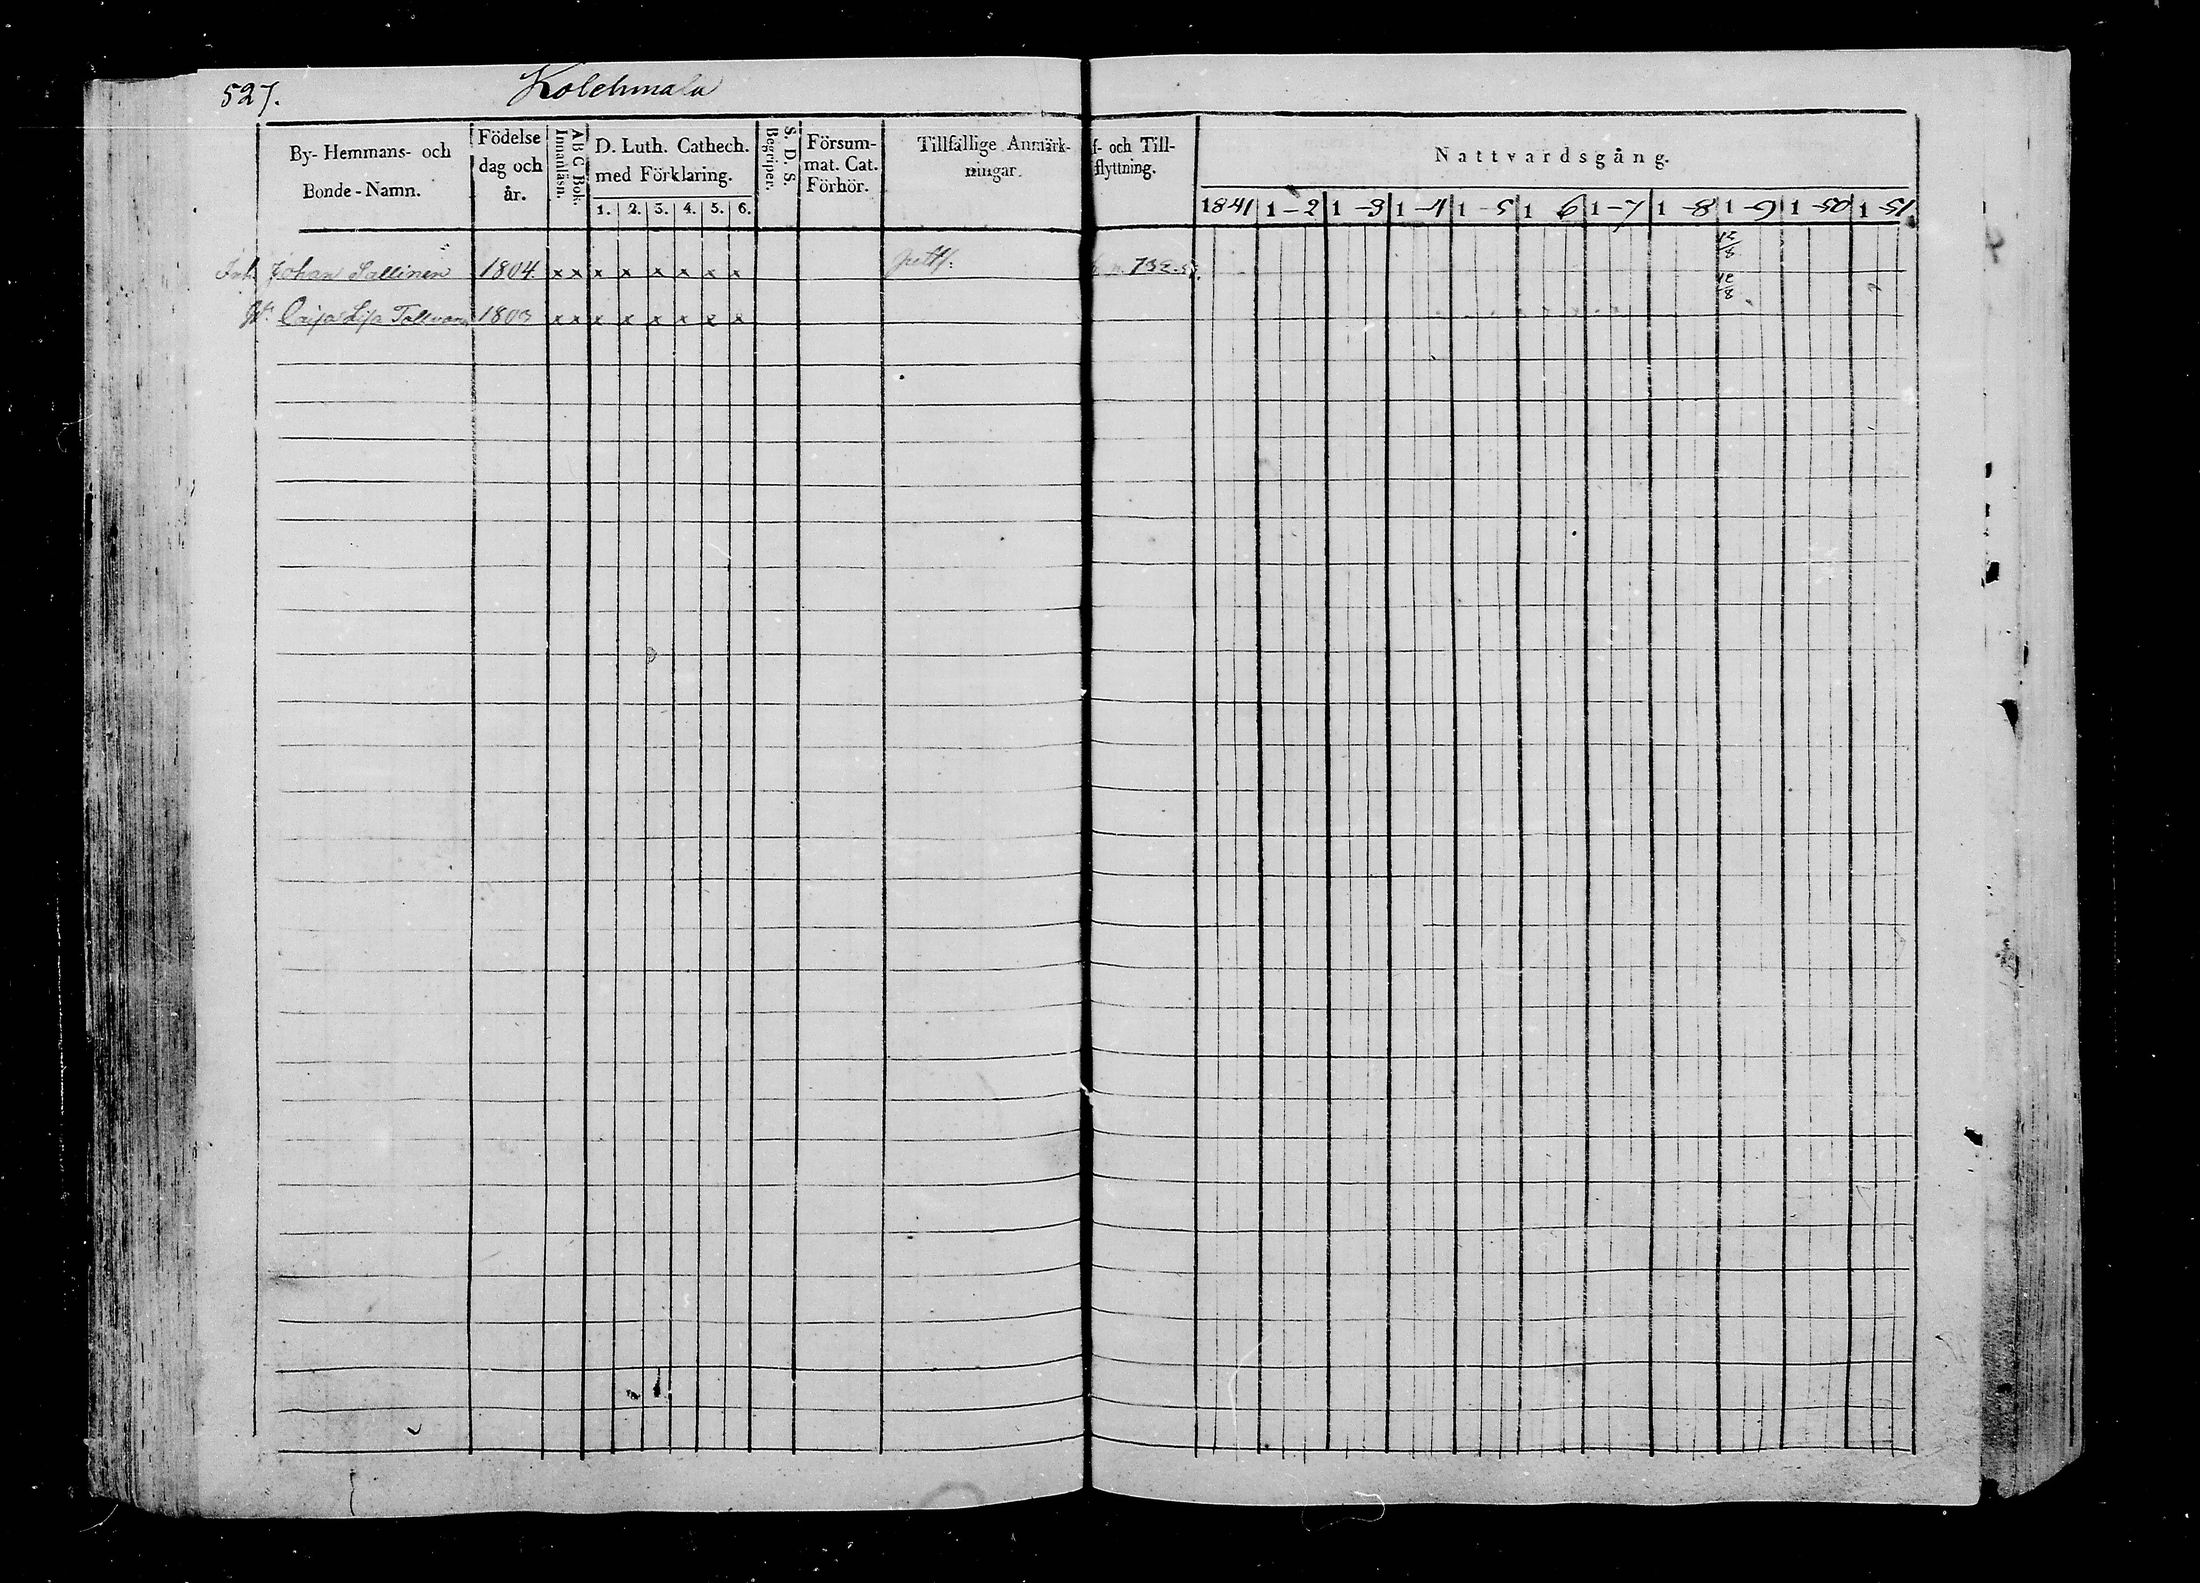 527. Kolehmala
By- Hemmans- och Bonde-Namn.
Födelse dag och år.
A B C Bok. Innanläsn.
D. Luth. Cathech. med Förklaring.
1. 2. 3. 4. 5. 6.
S. D. S. Begriper.
Försum- mat. Cat. Förhör.
Tillfällige Anmärk- ningar.
f- och Till- flyttning.
Nattvardsgång.
1841 1-2 1-3 1-4 1-5 1 6 1-7 1-8 1-9 1-50 1-51
Inh. Johan Sallinen 1804 x x x x x x x x 12/8
H. Caisa Lisa Tolvan 1803 x x x x x x x x 12/8